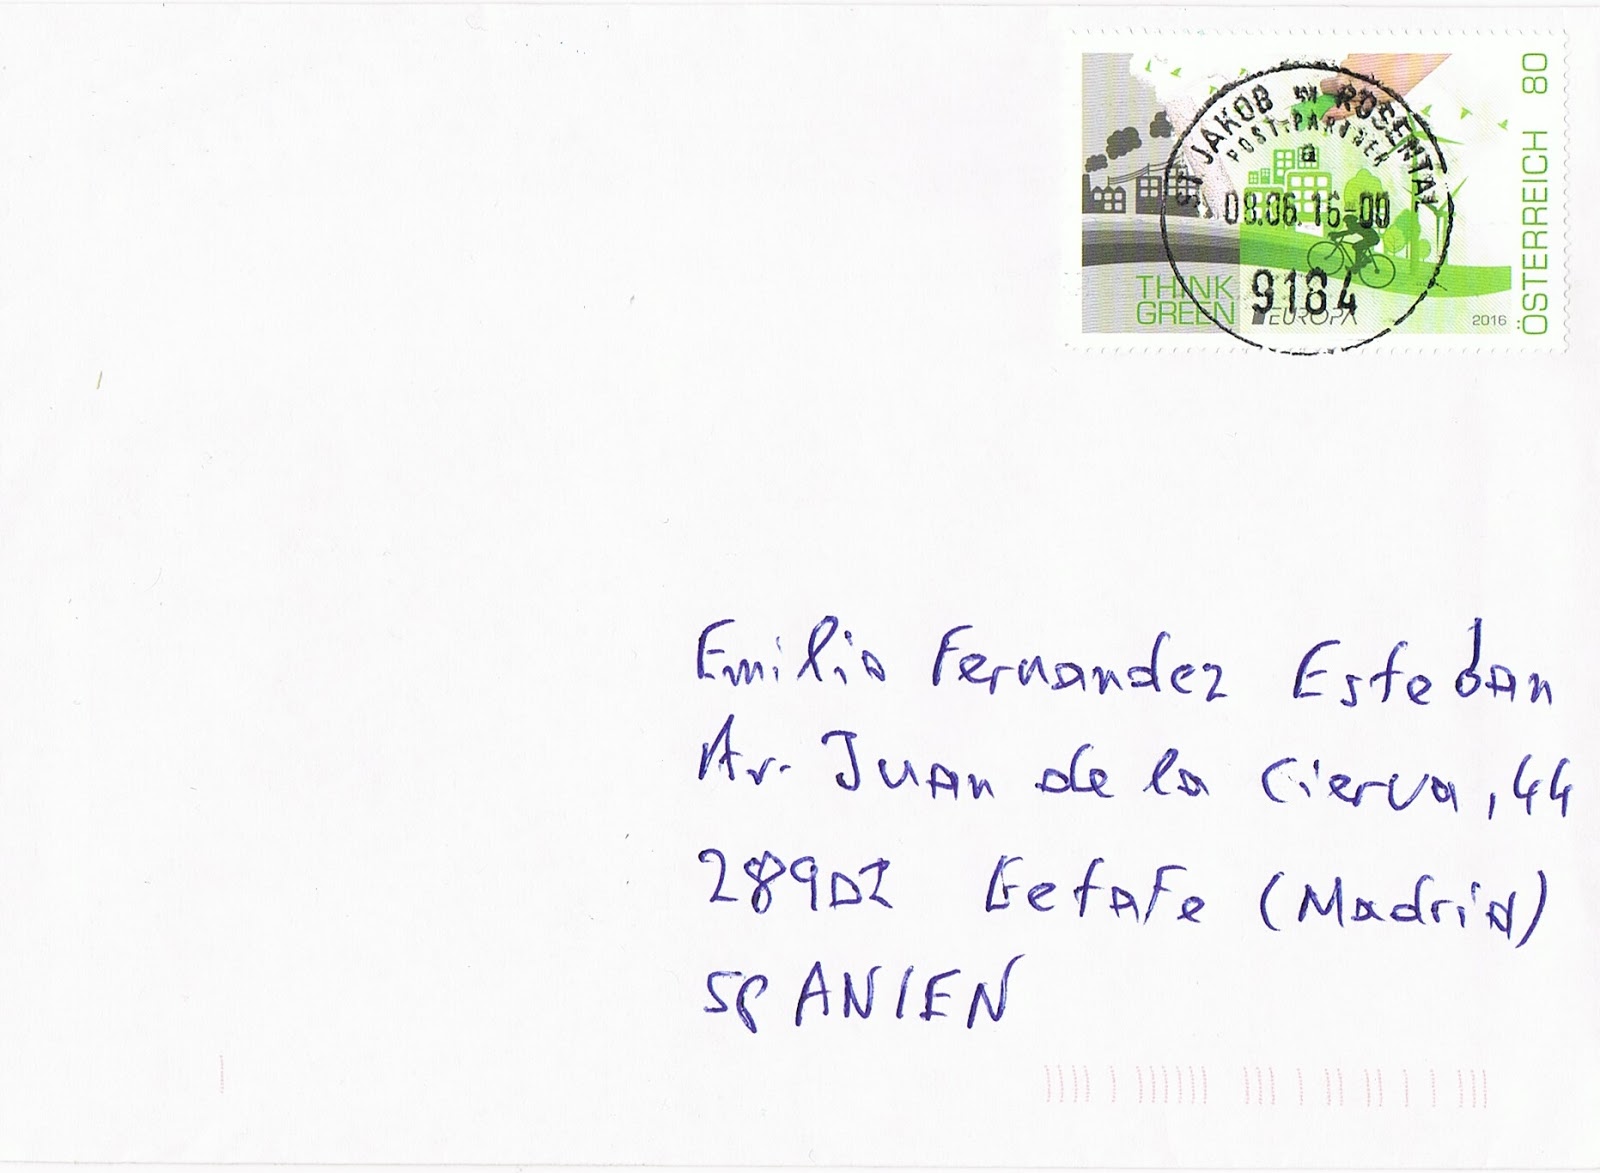 ÖSTERREICH 80
ST JAKOB IM ROSENTAL
POST.PARTNER
a
08.06.16-00
9184
THINK
GREEN
EUROPA
2016
Emilio Fernandez Esteban
Av. Juan de la Cierva, 44
28902 Getafe (Madrid)
SPANIEN